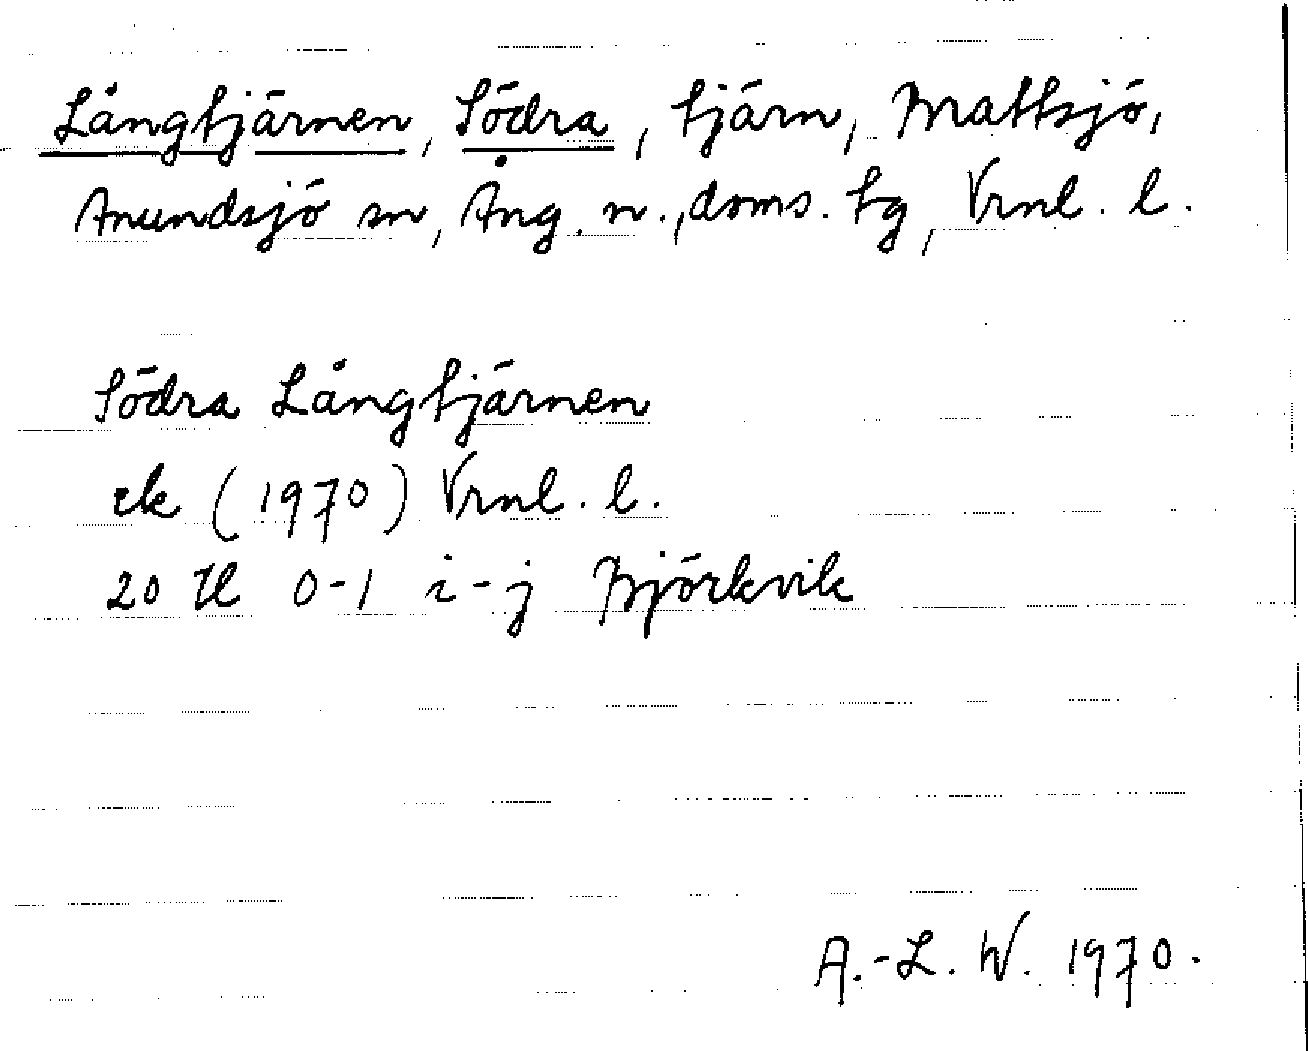 Långtjärnen, Södra, tjärn, Mattsjö,
Anundsjö sn, Ång. n., doms. tg, Vrnl. l.
Södra Långtjärnen
ek (1970) Vrnl. l.
20 Il 0-1 i-j Björkvik
A.-L. W. 1970.